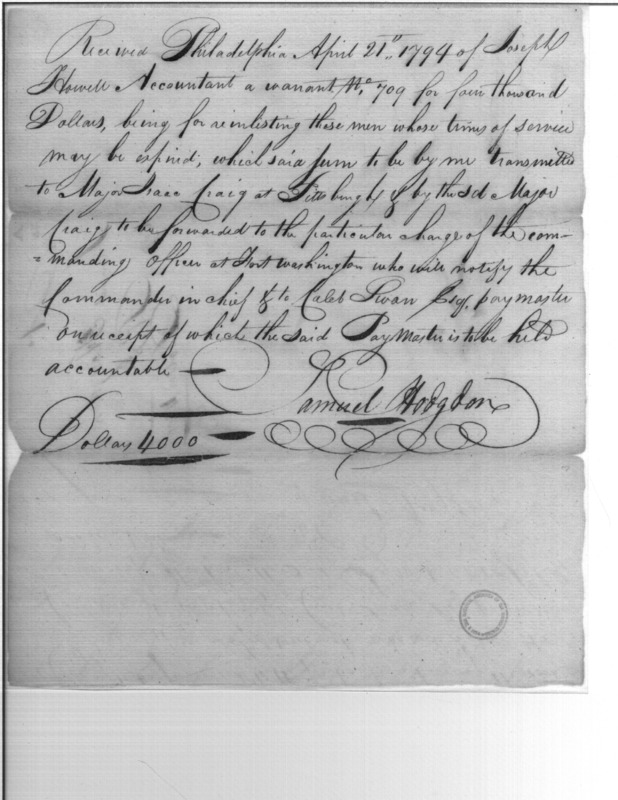 Received Philadelphia April 21st, 1794 of Joseph
Howell Accountant a warrant No. 709 for four thousand
Dollars, being for reinlisting these men whose times of service
may be expired, which said sum to be by me transmitted
to Major Isaac Craig at Pittsburgh & by the sd Major
Craig to be forwarded to the particular charge of the com-
=manding Officer at Fort Washington who will notify the
Commander in chief & to Caleb Swan Esqr. paymaster
on receipt of which the said Pay Master is to be held
accountable —
Samuel Hodgdon
Dollars 4000 —